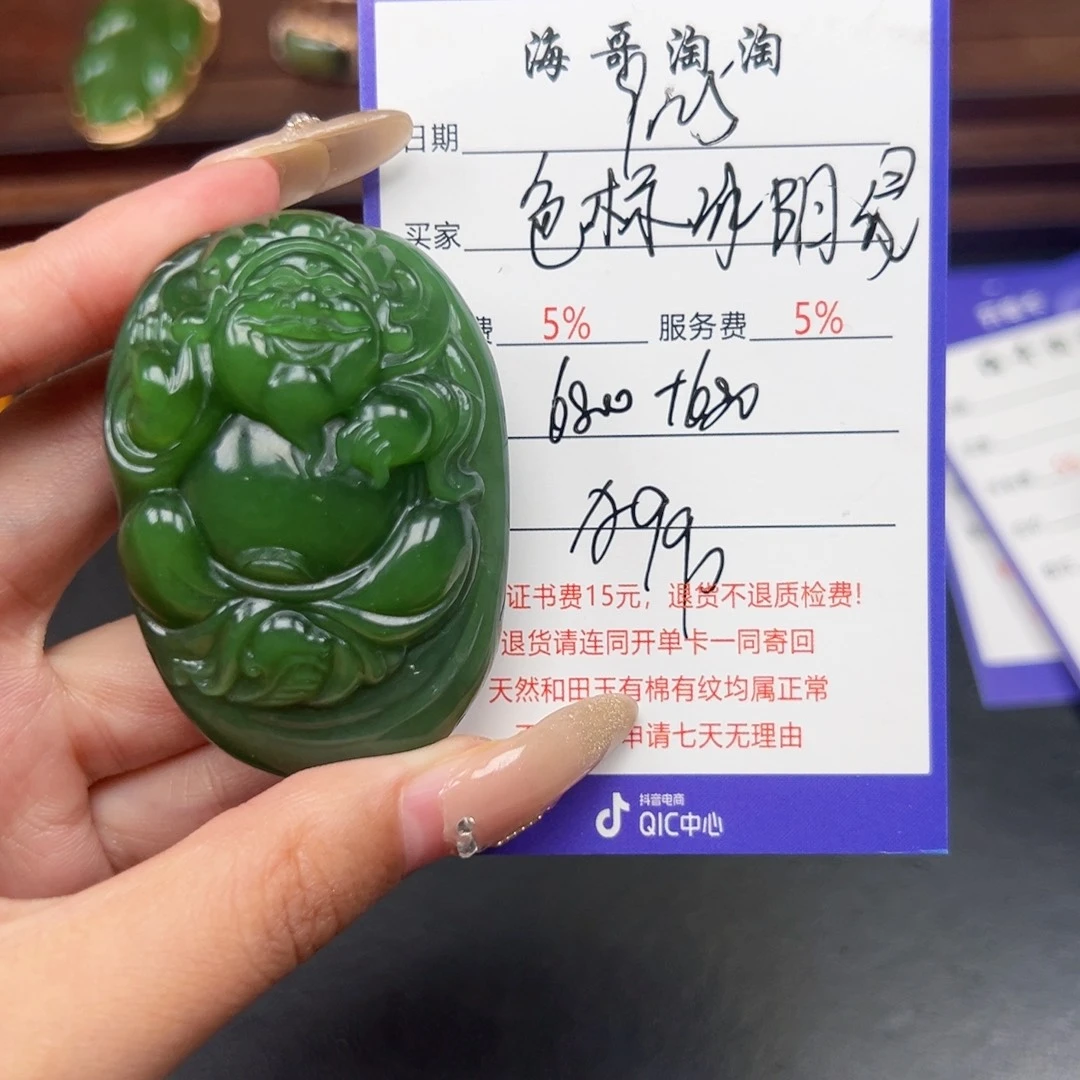 海哥淘淘
日期
买家
费 5% 服务费 5%
6800 +680
证书费15元，退货不退质检费!
退货请连同开单卡一同寄回
天然和田玉有棉有纹均属正常
申请七天无理由
抖音电商
QIC中心